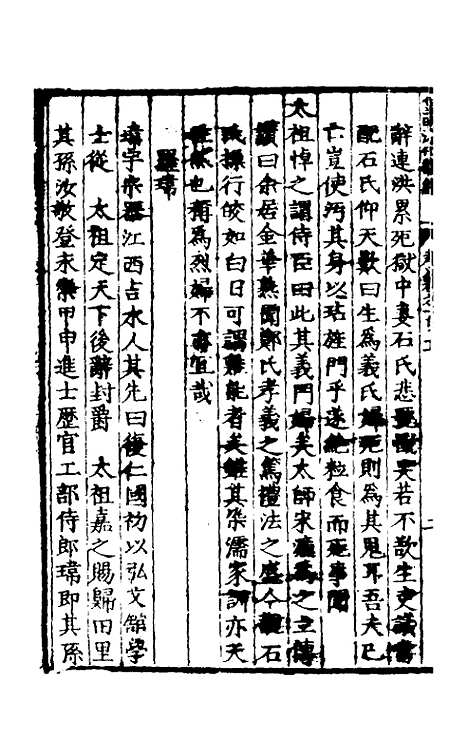 辭連洪累死獄中妻石氏悲號欲哭若不欲生吏議當
配石氏仰天歎曰生為義氏婦死則為其鬼耳吾夫已
亡豈使汚其身以玷旌門乎遂絶粒食而死事聞
太祖悼之謂侍臣曰此其義門婦矣太師宋濂為之立傳
贊曰余居金華熟聞鄭氏孝義之篤禮法之盛今觀石
氏操行皎如白日可謂難能者矣雖其染濡家訓亦天
性然也稱為烈婦不亦宜哉
羅瑋
瑋字 江西吉水人其先曰復仁國初以弘文館學
士從 太祖定天下後辭封爵 太祖嘉之賜歸田里
其孫汝敬登永樂甲申進士歷官工部侍郎瑋即其孫